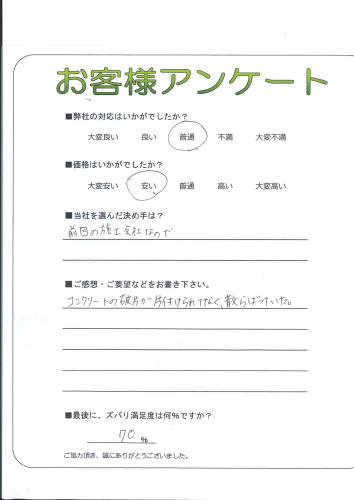 お客様アンケート
■弊社の対応はいかがでしたか?
大変良い 良い 普通 不満 大変不満
■価格はいかがでしたか?
大変安い 安い 普通 高い 大変高い
■当社を選んだ決め手は?
前回の施工会社なので
■ご感想・ご要望などをお書き下さい。
コンクリートの破片が片付けられてなく、散らばっていた。
■最後に、ズバリ満足度は何%ですか?
70 %
ご協力頂き、誠にありがとうございました。